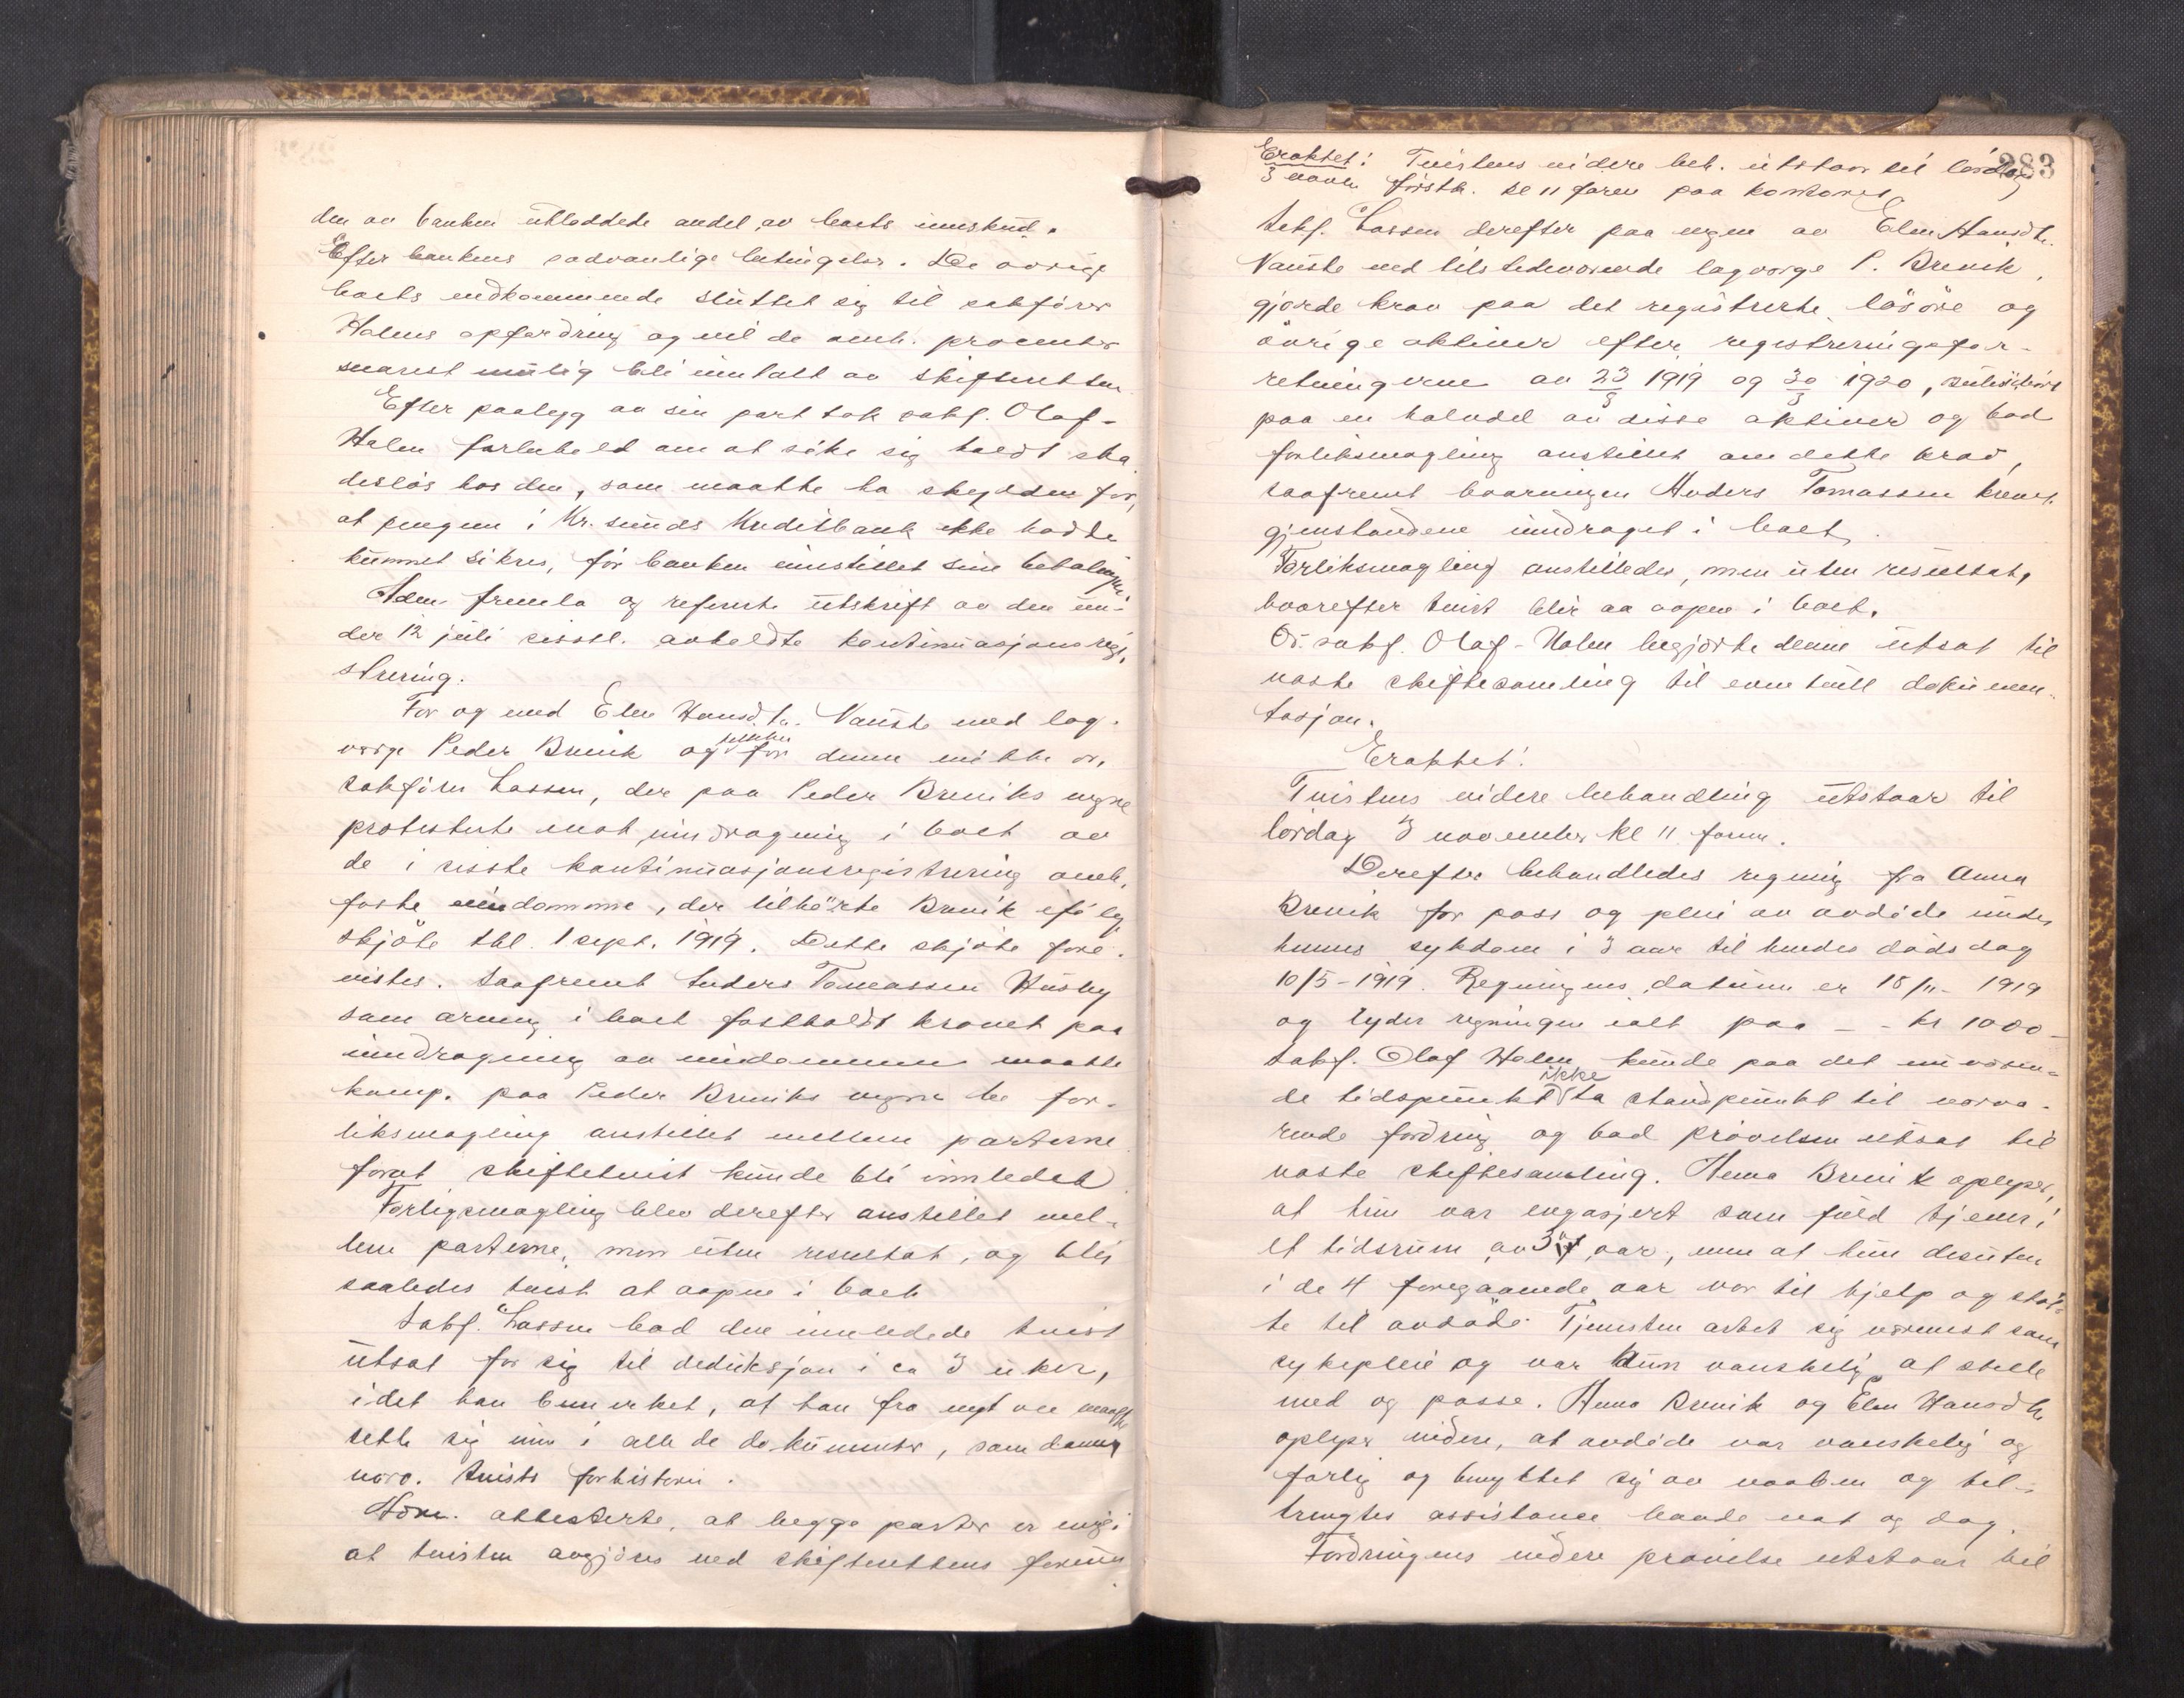 den av banken utloddede andel av boets innskud.
Efter bankens sedvanlige betingelser. De øvrige
boets vedkommende sluttet sig til sakfører
Holms opfordring og vil de omh. procenter
snarest mulig bli inntatt av skifteretten
Efter paalegg av sin part tok sakf. Olaf-
Holm forbehold om at söke sig holdt ska
deslös hos den, som maatte ha skylden for,
at pengene i Kr.sunds Kreditbank ikke hadde
kunnet sikres, för banken innstillet sine betalinger.
Adm. fremla og refererte utskrift av den un-
der 12 juli sisstl. avholdte kontinuasjonsregi-
strering.
For og med Elen Hansd.tr. Nauste med lag-
verge Peder Brevik og for denne mötte or.
sakförer Lassen, der paa Peder Breviks vegne
protesterte mot inndragning i boet av
de i sisste kontinuasjonsregistrering omh.
faste eiendomme, der tilhörte Brevik ifölg
skjöte tbl. 1 sept. 1919. Dette skjöte fore-
vistes. Saafremt Anders Tomassen Husby
som arving i boet fastholdt kravet paa
inndragning av eiendommene maatte
komp. paa Peder Breviks vegne be for-
liksmegling anstillet mellem parterne
forat skiftetvist kunde bli innledet
Forligsmegling blev derefter anstillet mel-
lem parterne, men uten resultat, og blir
saaledes tvist at aapne i boet
Sakf. Lassen bad den innledede tvist
utsat for sig til deduksjon i ca 3 uker,
idet han bemerket, at han fra nyt av maatte
sette sig inn i alle de dokumenter, som danner
nærv. tvists forhistorie.
Adm. attesterte, at begge parter er enig i
at tvisten avgjöres ved skifterettens forum
283
Eraktet: Tvistens videre beh. utstaar til lørdag
3 novbr förstk. kl 11 form paa kontoret
Sakf. Lassen derefter paa vegne av Elen Hansdtr.
Nauste med tilstedeværende lagverge P. Brevik,
gjorde krav paa det registrerte lösöre og
övrige aktiver efter registreringsfor-
retningerne av 23/9 1919 og 30/3 1920,
paa en halvdel av disse aktiver og bad
forliksmegling anstillet om dette krav,
saafremt Anders Tomassen krever
gjenstandene inndraget i boet.
Forliksmegling anstilledes, men uten resultat,
hvorefter tvist blir aa aapne i boet.
O.r. sakf. Olaf-Holm begjærte denne utsat til
næste skiftesamling til eventuell dokumen-
tasjon.
Eraktet:
Tvistens videre behandling utstaar til
lørdag 3 november kl 11 form.
Derefter behandledes regning fra Anna
Brevik for pass og pleie av avdöde under
hennes sykdom i 3 aar til hendes dödsdag
10/5-1919. Regningens datum er 18/11-1919
og lyder regningen ialt paa - - kr 1000-
Sakf. Olaf Holm kunde paa det nuværen-
de tidspunkt ikke ta standpunkt til nærvæ-
rende fordring og bad prövelsen utsat til
næste skiftesamling. Anna Brevik oplyser,
at hun var engasjert som fuld tjener i
et tidsrum av 3 aar, men at hun desuten
i de 4 foregaaende aar var til hjelp og stöt-
te til avdöde. Tjenesten artet sig nærmest som
sykepleie og var hun vanskelig at stelle
med og passe. Anna Brevik og Elen Hansdtr
oplyser videre, at avdöde var vanskelig og
farlig og benyttet sig av vaaben og til-
trengtes assistance baade nat og dag.
Fordringens videre prövelse utstaar til